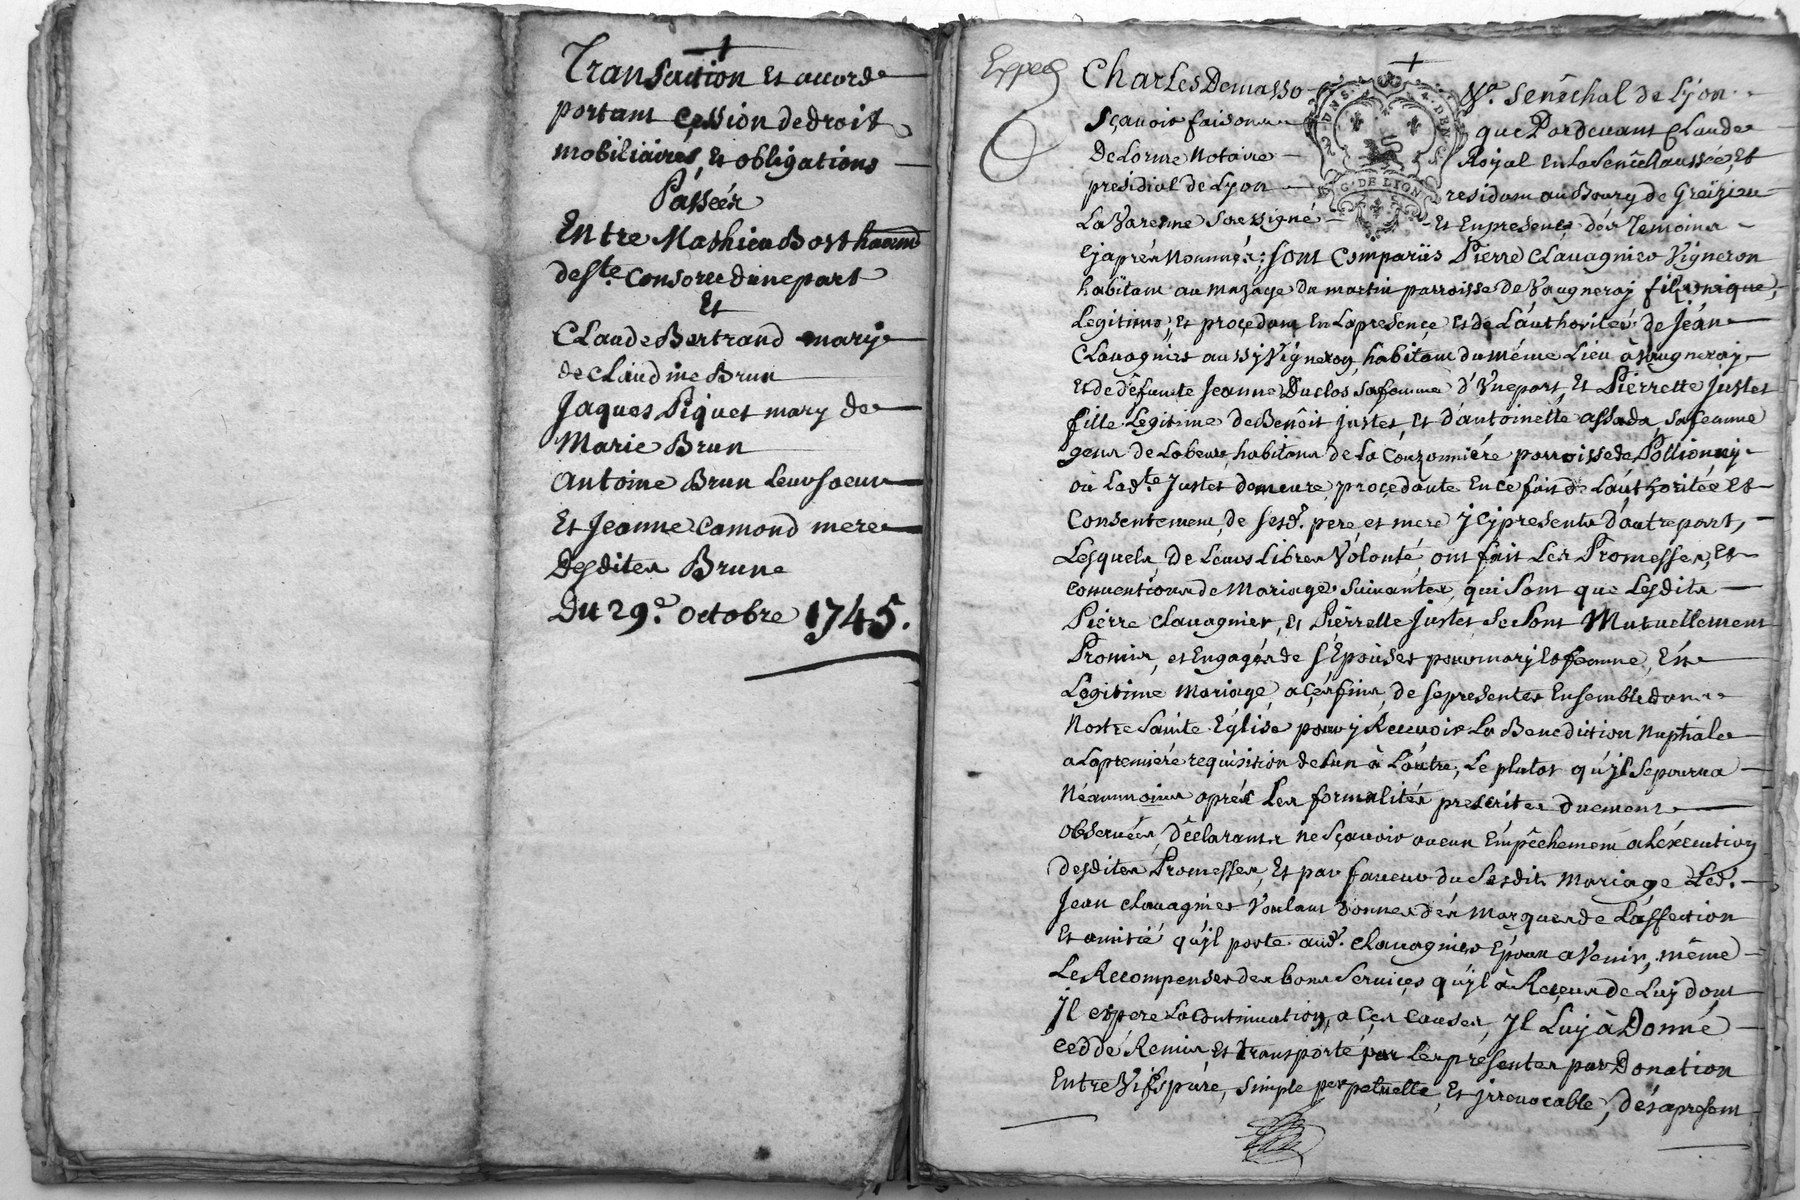 Transaction et accord
portant cession de droit
mobiliaires, et obligations
Passées
Entre Mathieu Bost
de Ste. Consorce d'une part
Et
Claude Bertrand mary
de Claudine Brun
Jaques Piquet mary de
Marie Brun
Antoine Brun leur soeur
Et Jeanne Camond mere
Desdites Brune
Du 29e. octobre 1745.
Exped
Charles Demasso
Sénêchal de Lyon
Sçavoir faisons
que Pardevant Claude
Delorme Notaire
Royal En la Senêchaussée, Et
présidial de Lyon
residam au Bourg de Greizieu
La Varenne Soussigné
Et En presence des Temoins
G. DE LYON
Ejaprés Nommés; sont Comparüs Pierre Clavagnier Vigneron
habitam au mazage du martin parroisse de Vaugneray fils unique,
Legitime, Et proçedam En la presençe Et de L'authoritée de Jéan
Clavagnier aussy Vigneron, habitam du même Lieu à Vaugneray
Et de dêfunte Jeanne Duclos sa femme d'Vne part, Et Pierrette Justet
fille Legitime de Benôit Justet, Et d'antoinette assada, sa femme
gens de Labeur, habitans de La Couzonniére parroisse de Pollionnay
où Lad.te Justet demeure, proçedante En ce fait de L'authoritée Et
Consentement de sesd. pere et mere Jcy presents d'autre part,
Lesquels, de Leurs Libres Volonté, ont fait Les Promesses, Et
conventions de Mariage suivantes, qui sont que Lesdits
Pierre Clavagnier, Et Piérrette Justet se sont Mutuellement
Promis, et Engagés de s'Epouser pour mary Et femme, En
Légitime Mariage, a Çes fins, de se presenter Ensemble dans
Nostre Sainte Eglise pour y Reçevoir La Benediction Nuptiale
a La premiére requisition de L'un à L'autre, Le plutot qu'jl se pourra
Néanmoins aprés Les formalités prescrites duement
Observées, Déclarants ne Sçavoir aucun Empêchement a L'éxecution
desdites Promesses, Et par faveur du susdit Mariage Led.
Jean Clavagnier Voulant donner des marques de L'affection
Et amitié qu'jl porte aud. Clavagnier Epoux a Venir, même
Le Recompenser des bons Serviçes qu'jl à Reçeus de Luy dont
Jl espere La Continuation, a Çes Causes, Jl Luy à Donné
ceddé Remis Et transporté par Les présentes par Donation
Entre Vifs pure, simple perpetuelle, Et jrrevocable, dés apresent